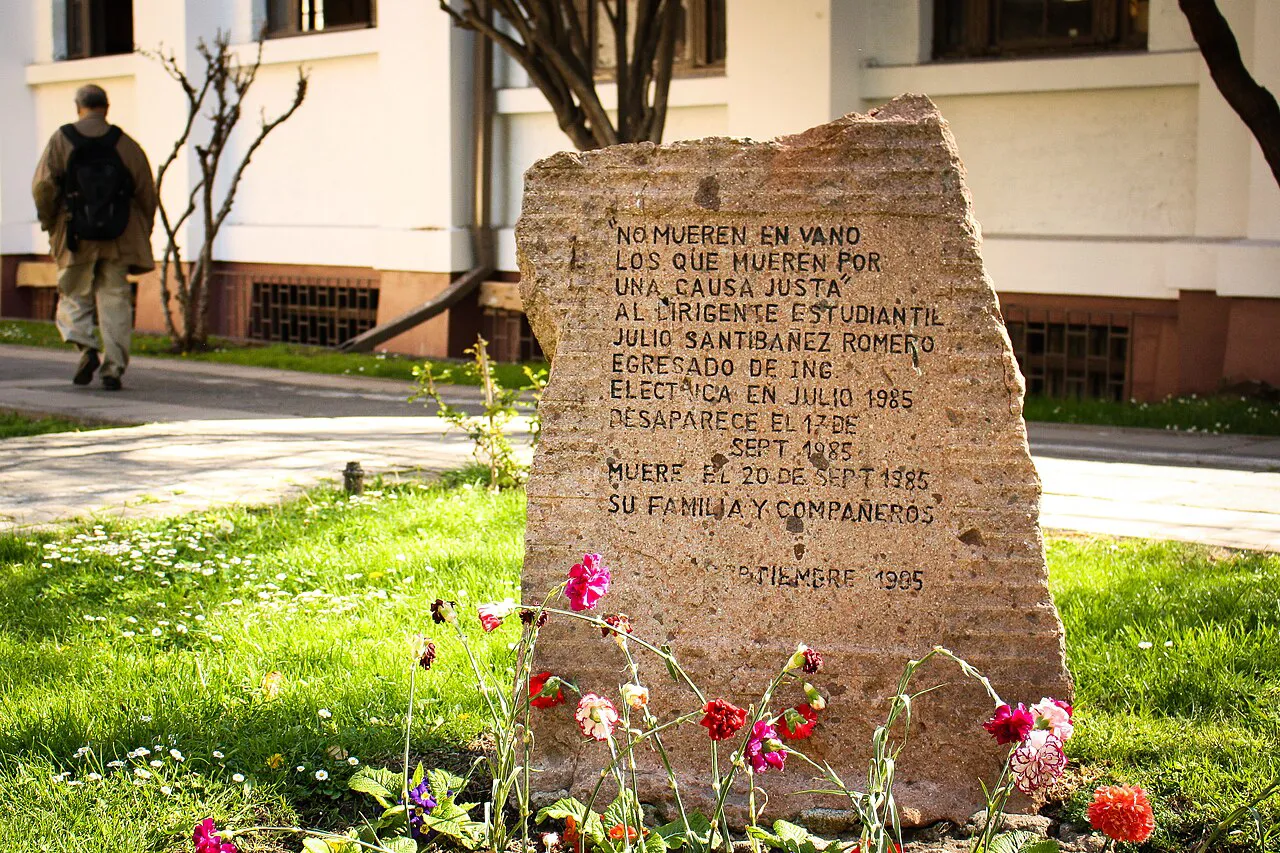 "NO MUEREN EN VANO
LOS QUE MUEREN POR
UNA CAUSA JUSTA"
AL DIRIGENTE ESTUDIANTIL
JULIO SANTIBAÑEZ ROMERO
EGRESADO DE ING
ELECTRICA EN JULIO 1985
DESAPARECE EL 17 DE
SEPT 1985
MUERE EL 20 DE SEPT 1985
SU FAMILIA Y COMPAÑEROS
1985